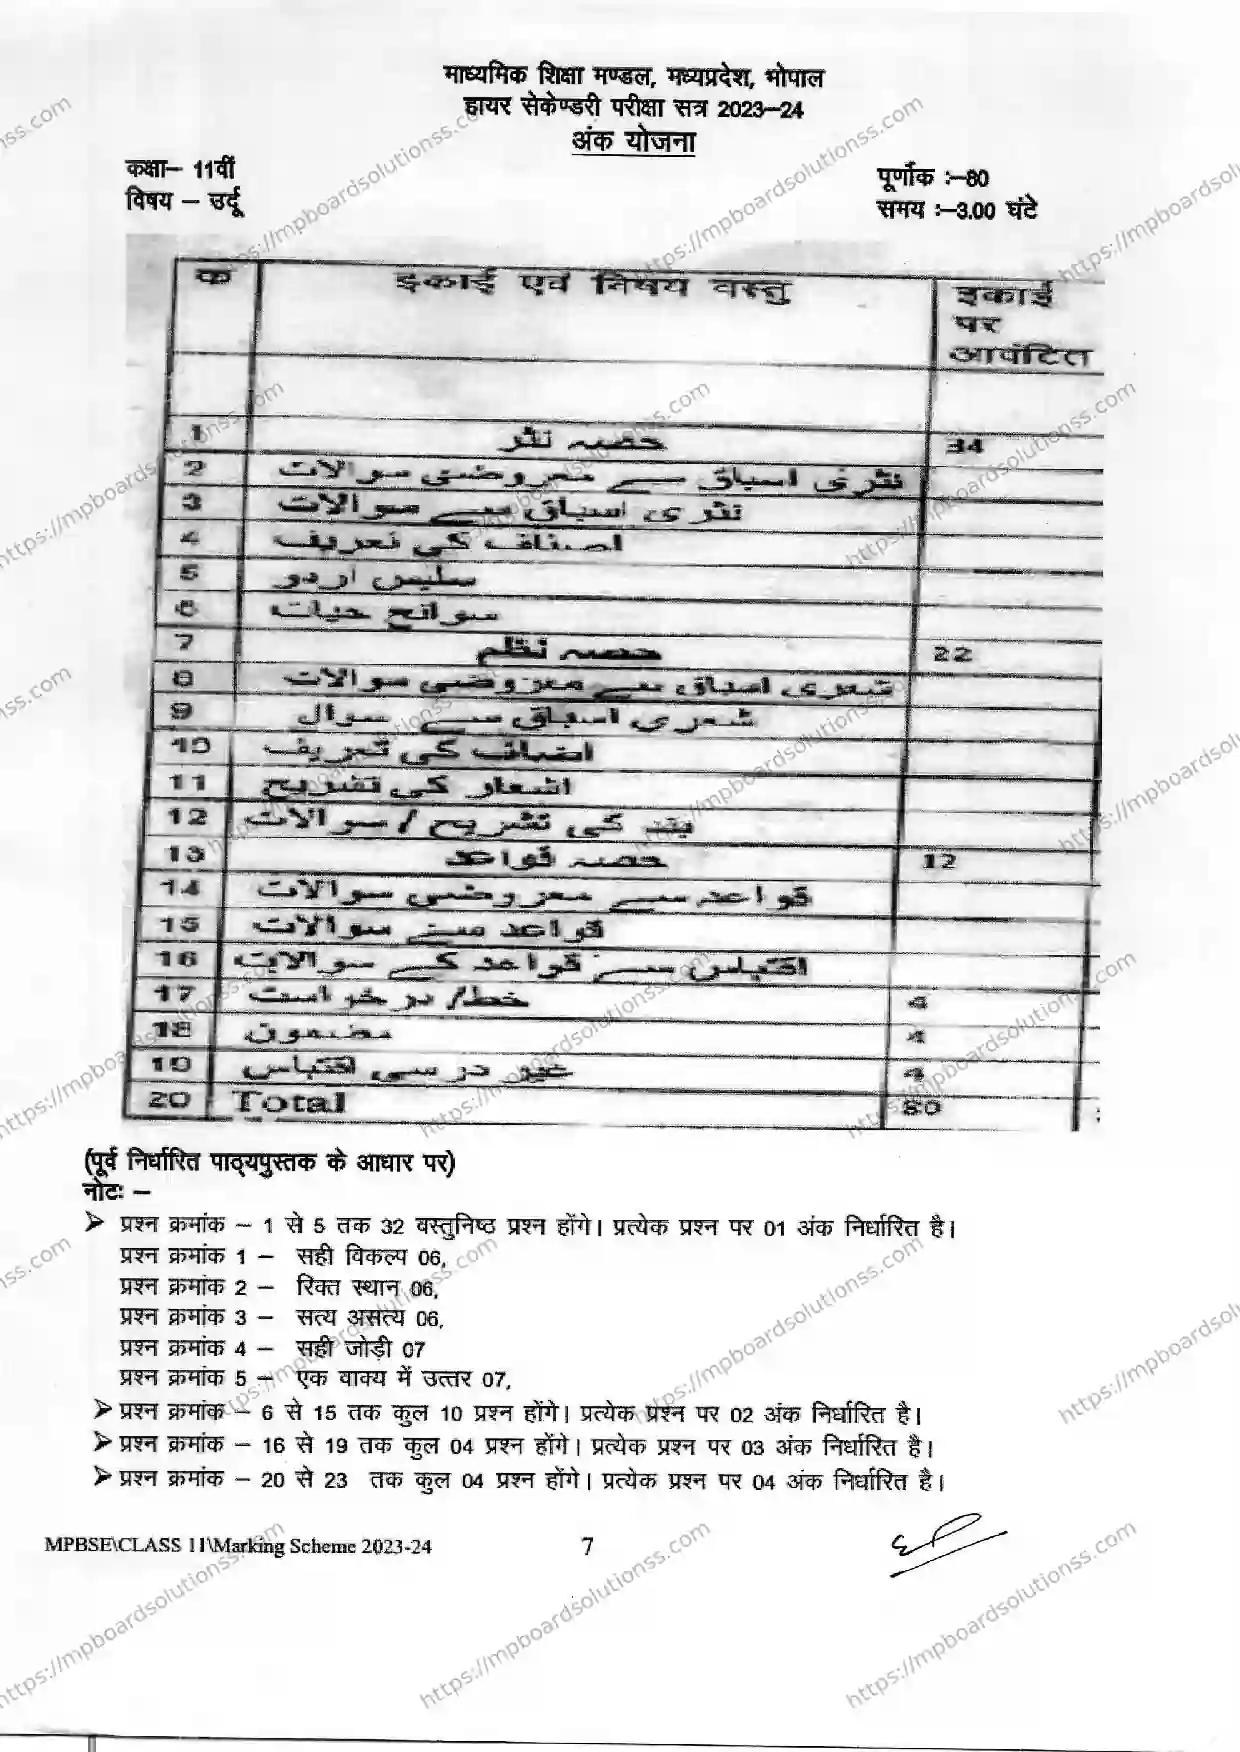 माध्यमिक शिक्षा मण्डल, मध्यप्रदेश, भोपाल
हायर सेकेण्डरी परीक्षा सत्र 2023–24
अंक योजना
कक्षा– 11वीं
पूर्णांक :–80
विषय – उर्दू
समय :–3.00 घंटे
क इकाई एवं विषय वस्तु इकाई पर आवंटित
1 حصہ نثر 34
2 نثری اسباق سے معروضی سوالات
3 نثری اسباق سے سوالات
4 اصناف کی تعریف
5 سلیس اردو
6 سوانح حیات
7 حصہ نظم 22
8 شعری اسباق سے معروضی سوالات
9 شعری اسباق سے سوال
10 اصناف کی تعریف
11 اشعار کی تشریح
12 بند کی تشریح / سوالات
13 حصہ قواعد 12
14 قواعد سے معروضی سوالات
15 قواعد سے سوالات
16 اقتباس سے قواعد کے سوالات
17 خط/ درخواست 4
18 مضمون 4
19 غیر درسی اقتباس 4
20 Total 80
(पूर्व निर्धारित पाठ्यपुस्तक के आधार पर)
नोटः –
➢ प्रश्न क्रमांक – 1 से 5 तक 32 वस्तुनिष्ठ प्रश्न होंगे। प्रत्येक प्रश्न पर 01 अंक निर्धारित है।
प्रश्न क्रमांक 1 – सही विकल्प 06,
प्रश्न क्रमांक 2 – रिक्त स्थान 06,
प्रश्न क्रमांक 3 – सत्य असत्य 06,
प्रश्न क्रमांक 4 – सही जोड़ी 07
प्रश्न क्रमांक 5 – एक वाक्य में उत्तर 07,
➢ प्रश्न क्रमांक – 6 से 15 तक कुल 10 प्रश्न होंगे। प्रत्येक प्रश्न पर 02 अंक निर्धारित है।
➢ प्रश्न क्रमांक – 16 से 19 तक कुल 04 प्रश्न होंगे। प्रत्येक प्रश्न पर 03 अंक निर्धारित है।
➢ प्रश्न क्रमांक – 20 से 23 तक कुल 04 प्रश्न होंगे। प्रत्येक प्रश्न पर 04 अंक निर्धारित है।
MPBSE\CLASS 11\Marking Scheme 2023-24 7
https://mpboardsolutionss.com